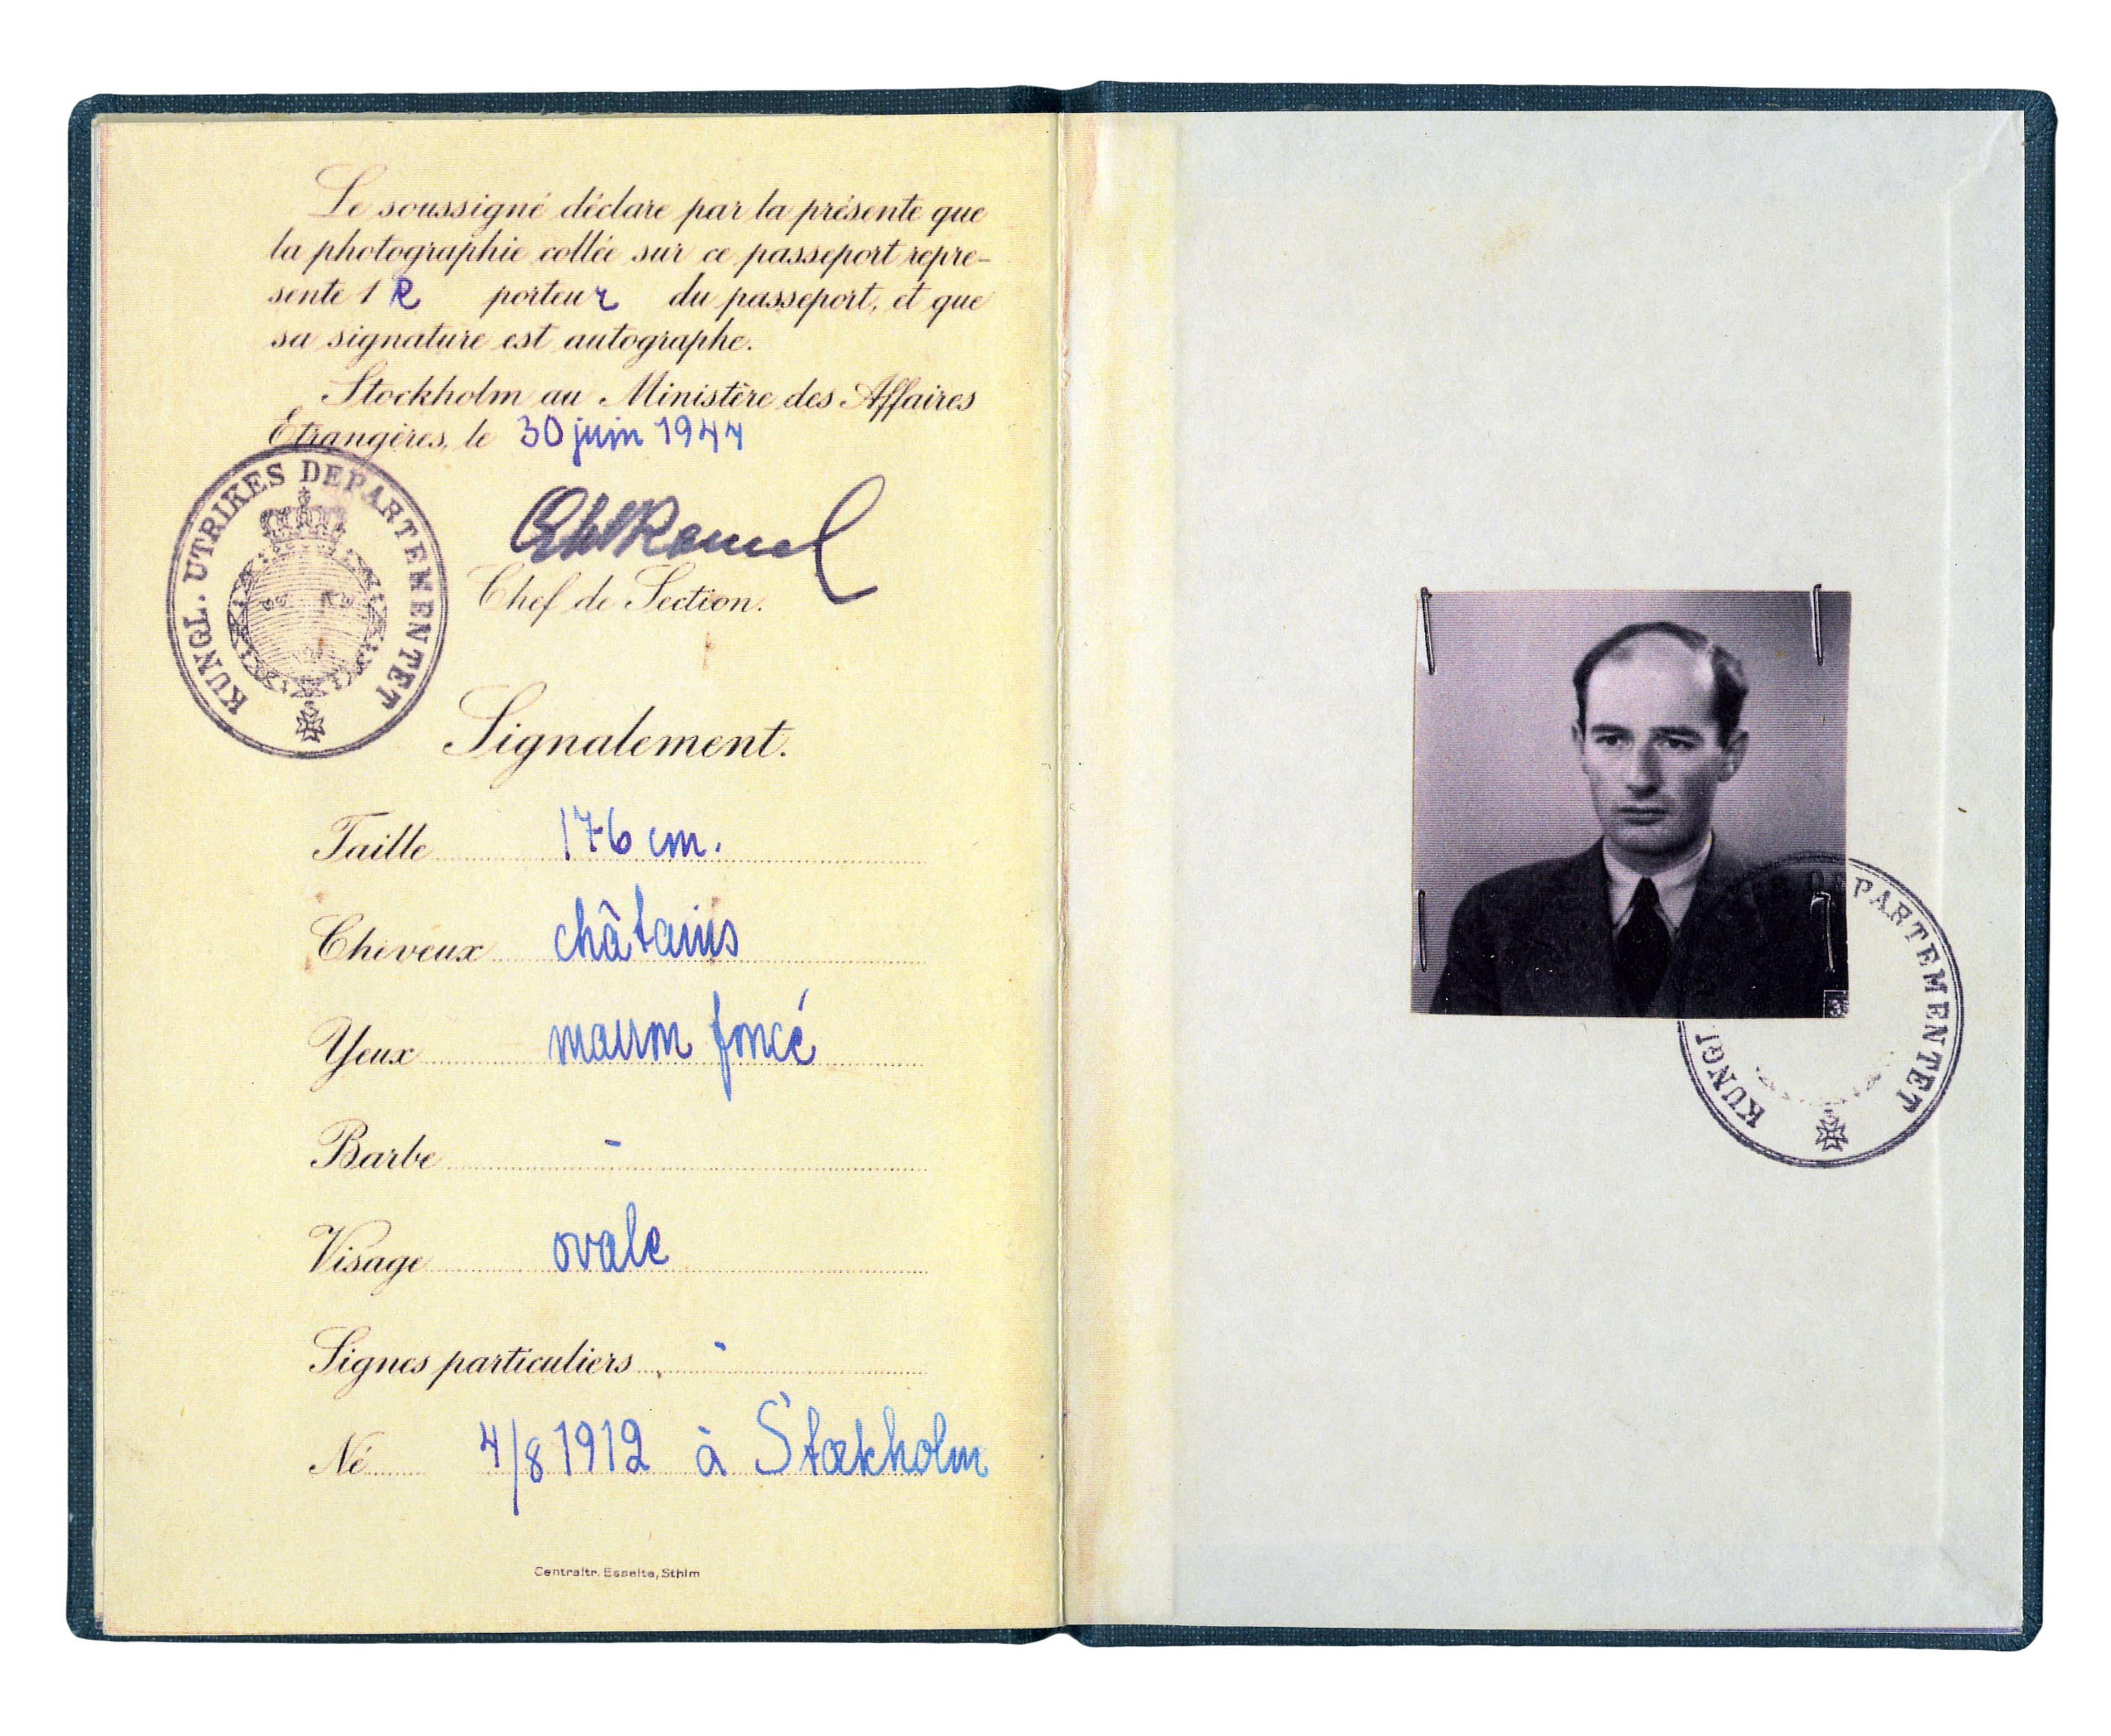 Le soussigné déclare par la présente que
la photographie collée sur ce passeport repre-
sente l e porteur du passeport, et que
sa signature est autographe.
Stockholm au Ministère des Affaires
Etrangères, le 30 juin 1944
KUNGL. UTRIKES DEPARTEMENTET
Chef de Section.
Signalement.
Taille 176 cm.
Cheveux châtains
Yeux marron foncé
Barbe -
Visage ovale
Signes particuliers -
Né 4/8 1912 à Stockholm
Centraltr. Esselte, Sthlm
DEPARTEMENTET